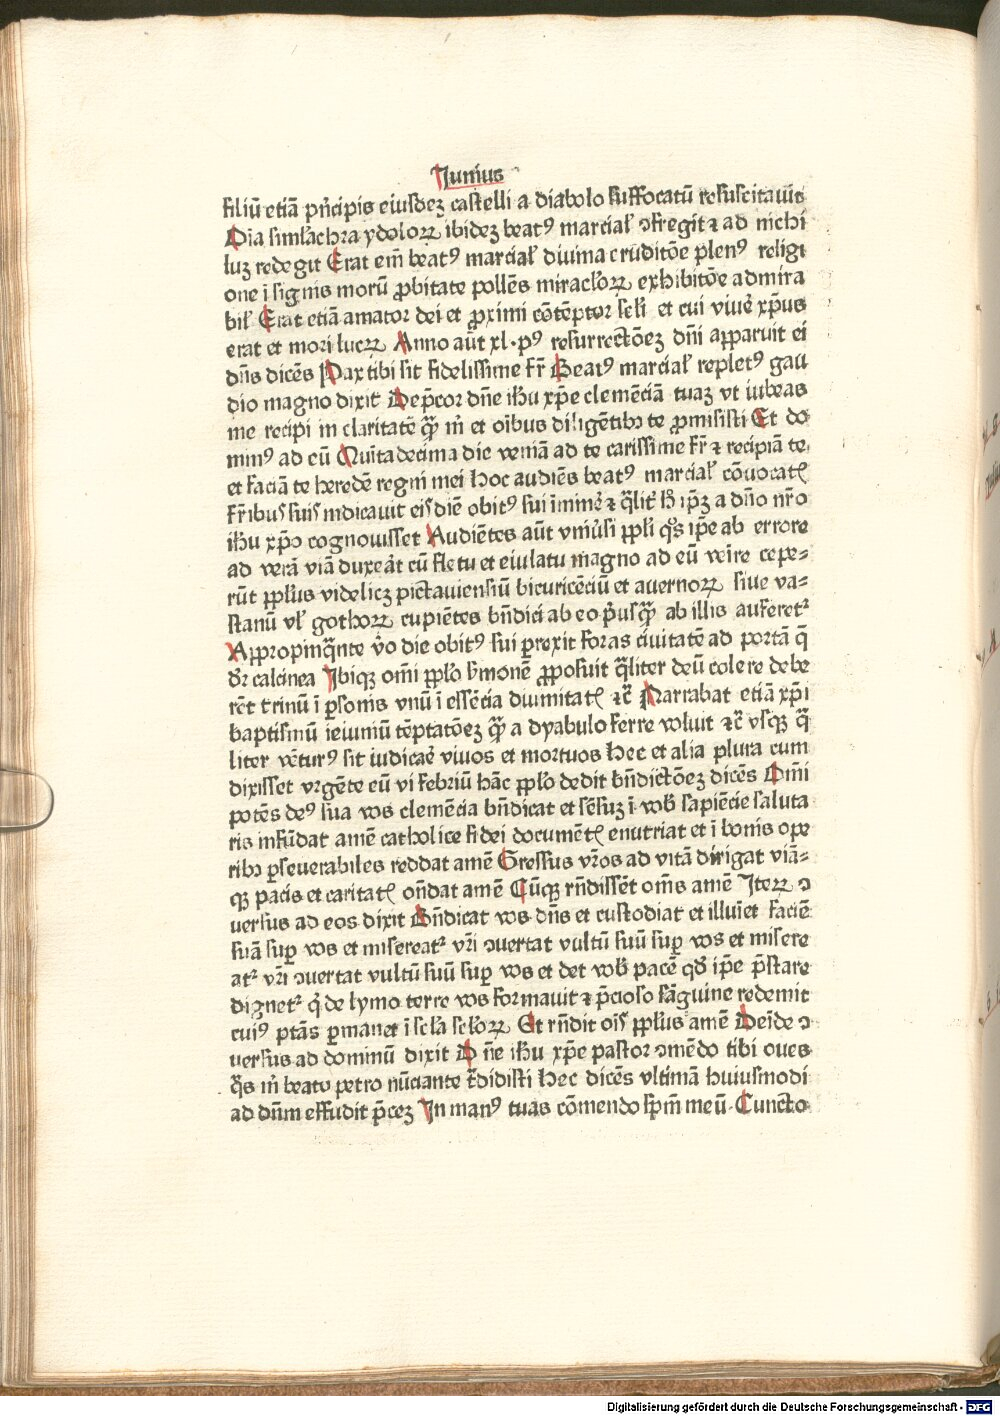 Junius
filiū etiā pn̄cipis eiusdeꝫ castelli a diabolo suffocatū resuscitauit
Oīa simlachra ydoloꝝ ibideꝫ beatꝰ marcial̕ ꝯfregit ⁊ ad nichi
luꝫ redegit Erat em̄ beatꝰ marcial̕ diuina eruditōe plenꝰ religi
one ī signis morū ꝓbitate pollēs miracl̕oꝝ exhibitōe admira
bil̕ Erat etiā amator dei et ꝓximi cōtēptor scl̕i et cui viue̕ xp̄us
erat et mori lucꝝ Anno aūt xl. pꝰ resurrectōeꝫ dn̄i apparuit ei
dn̄s dicēs Pax tibi sit fidelissime fr̄ Beatꝰ marcial̕ repletꝰ gau
dio magno dixit Dep̄cor dn̄e ih̄u xp̄e clemēciā tuaꝫ vt iubeas
me recipi in claritatē qȝ̄ m̄ et oībus diligētibꝫ te ꝓmisisti Et do
minꝰ ad eū Quītadecima die veniā ad te carissime fr̄ ⁊ recipiā te
et faciā te heredē regni mei Hoc audiēs beatꝰ marcial̕ cōuocatꝭ
fr̄ibus suis indicauit eis diē obitꝰ sui īmine̕ ⁊ q̄lit̕ h̄ ip̄ꝫ a dn̄o nr̄o
ih̄u xp̄o cognouisset Audiētes aūt vniu̕si ppl̕i q̕s ip̄e ab errore
ad verā viā duxeāt cū fletu et eiulatu magno ad eū veīre cepe⸗
rūt ppl̕us videlicꝫ pictauiensiū bicuricēciū et auernoꝝ siue va⸗
stanū vl̕ gothoꝝ cupiētes bn̄dici ab eo p̕usqȝ̄ ab illis auferetᷣ
Appropinq̄nte v̕o die obitꝰ sui ꝑrexit foras ciuitatē ad portā q̄
dr̄ calcinea Ibiqꝫ om̄i ppl̕o s̕monē ꝓposuit q̄liter deū colere debe
rēt trinū ī ꝑsonis vnū ī essēcia diuinitatꝭ ⁊c̄ Narrabat etiā xp̄i
baptismū ieiuniū tēptatōeꝫ qȝ̄ a dyabulo ferre voluit ⁊c̄ vsqꝫ q̄
liter vēturꝰ sit iudicae̕ viuos et mortuos Hec et alia plura cum
dixisset vrgēte eū vi febriū hāc ppl̕o dedit bn̄dictōeꝫ dicēs Om̄i
potēs deꝰ sua vos clemēcia bn̄dicat et sēsuꝫ ī vob̄ sapiēcie saluta
ris infūdat amē catholice fidei documētꝭ enutriat et ī bonis ope
ribꝫ ꝑseuerabiles reddat amē Gressus vr̄os ad vitā dirigat viā⸗
qꝫ pacis et caritatꝭ on̄dat amē Cūqꝫ rn̄dissēt om̄s amē Iteꝝ ꝯ
uersus ad eos dixit Bn̄dicat vos dn̄s et custodiat et illuīet faciē
suā suꝑ vos et misereatᷣ vr̄i ꝯuertat vultū suū suꝑ vos et misere
atᷣ vr̄i ꝯuertat vultū suū suꝑ vos et det vob̄ pacē qd̕ ip̄e p̄stare
dignetᷣ q̕ de lymo terre vos formauit ⁊ p̄cioso sāguine redemit
cuiꝰ ptās ꝑmanet ī scl̕a scl̕oꝝ Et rn̄dit oīs ppl̕us amē Deīde ꝯ
uersus ad dominū dixit Dn̄e ih̄u xp̄e pastor ꝯmēdo tibi oues
q̄s m̄ beato petro nūciante tr̄didisti Hec dicēs vltimā huiusmodi
ad dn̄m effudit p̄ceꝫ In manꝰ tuas cōmendo sp̄m meū Cuncto
Digitalisierung gefördert durch die Deutsche Forschungsgemeinschaft - DFG